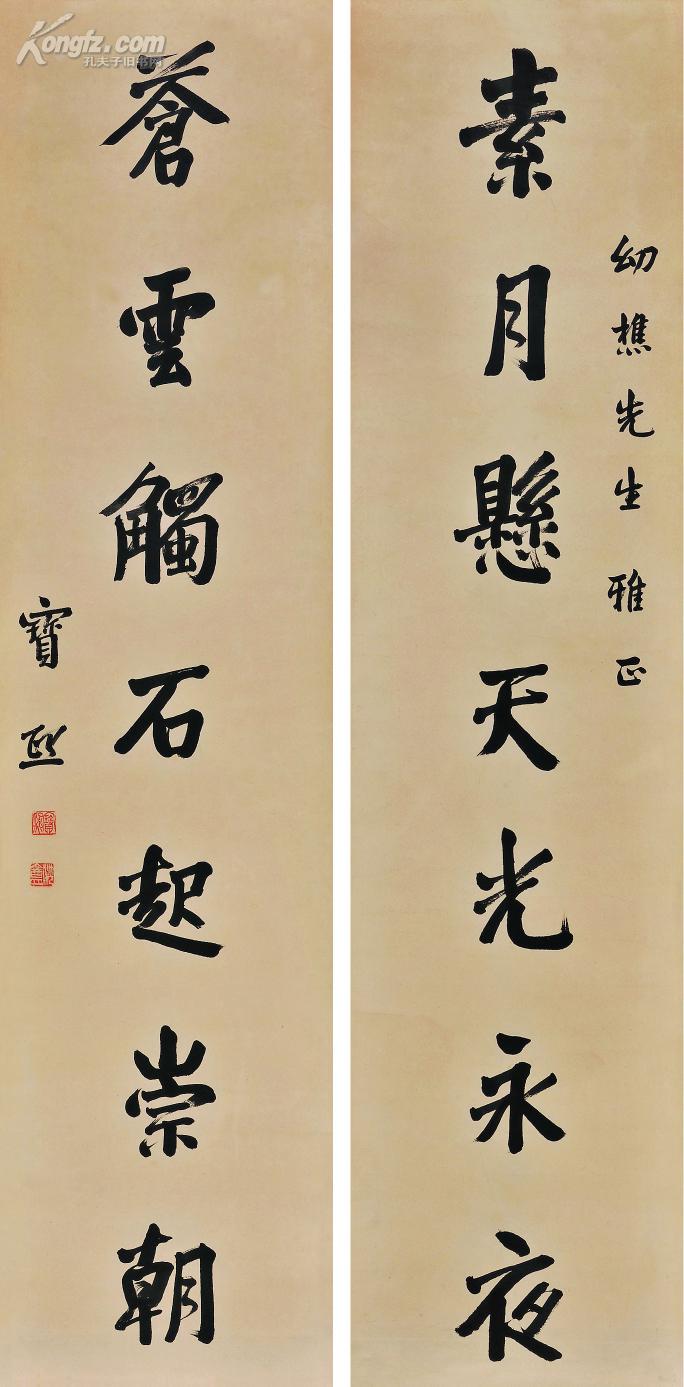 幼樵先生雅正
素月懸天光永夜
蒼雲觸石起崇朝
寶熙
Kongfz.com
孔夫子旧书网